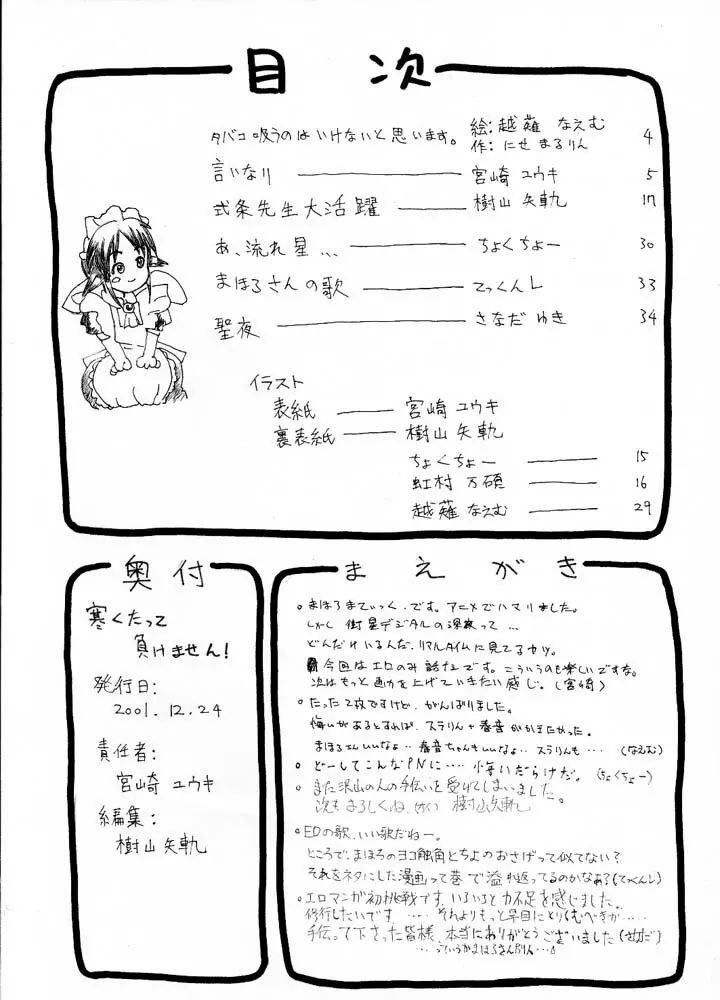 目次
タバコ吸うのはいけないと思います。 絵:越薙 なえむ 4
作:にせ まるりん
言いなり 宮崎 ユウキ 5
式条先生大活躍 樹山 矢軌 17
あ、流れ星... ちょくちょー 30
まほろさんの歌 てっくんL 33
聖夜 さなだ ゆき 34
イラスト
表紙 宮崎 ユウキ
裏表紙 樹山 矢軌
ちょくちょー 15
虹村 万碩 16
越薙 なえむ 29
奥付
寒くたって
負けません!
発行日:
2001.12.24
責任者:
宮崎 ユウキ
編集:
樹山 矢軌
まえがき
○まほろまてぃっく、です。アニメでハマりました。
しかし 衛星デジタルの深夜って...
どんだけいるんだ、リアルタイムに見てるヤツ。
今回はエロのみ話なです。こういうのも楽しいですな。
次はもっと画力を上げていきたい感じ。(宮崎)
○たった2枚ですけど、がんばりました。
悔いがあるとすれば、スラりん+春音がかきたかった。
まほろさんいいなぁ・・春音ちゃんもいいなぁ・・スラりんも・・・・ (なえむ)
○どーしてこんなPNに・・・・悔いだらけだ。(ちょくちょー)
○また沢山の人の手伝いを受けてしまいました。
次もよろしくね、 樹山矢軌
○EDの歌、いい歌だねー。
ところで、まほろのヨコ触角とちよのおさげって似てない?
それをネタにした漫画って巷で溢れ返ってるのかなぁ?(てっくんL)
○エロマンガ初挑戦です。いろいろと力不足を感じました。
修行したいです ・・・・ それよりもっと早目にとりくむべきが・・・・
手伝って下さった皆様、本当にありがとうございました(さなだ)